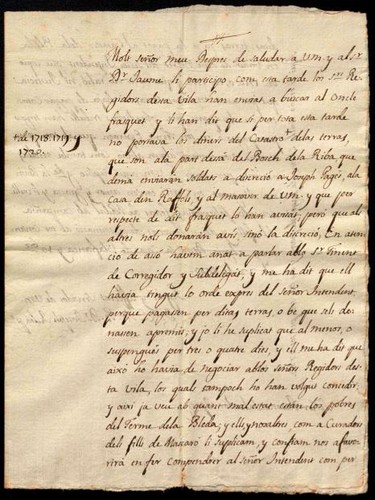 Molt señor meu. Despres de saludar à Vm, y al sr
Dr Jaume li participo, com esta tarde los srs Re-
gidors desta Vila han enviat à buscar al Oncle
fraques y li han dit que si per tota esta tarde
no portava los diners del Catastro de las terras,
que son ala part desta del Bosch dela Riba, que
demà enviaran soldats a discreciò a Joseph Pagès, ala
Casa den Raffols, y al masover de Vm, y que per
respecte de dit fraques lo han avisat, però que als
altres nols donaran avis, sinò la discreciò. En aten-
ciò de això havem anat a parlar ablo sr Tinent
de Corregidor y Subdelegat, y me ha dit que ell
havia tingut lo orde exprès del señor Intendent,
perque pagassen per ditas terras, o be que sels do-
nassen apremis, y jo li he suplicat que al menos, o
suspenguès per tres o quatre dies, y ell me ha dit que
això ho havia de negociar ablos señors Regidors des-
ta Vila, los quals tampoch ho han volgut concedir,
y axi ja veu ab quant mal estat estàn los pobres
del Terme dela Bleda; y ells y nosaltres, com a Curadors
dels fills de Mascarò li suplicam, y confiam nos afavo-
rirà en fer Compendrer al señor Intendent com per
t de 1718. 1719 y
1720.